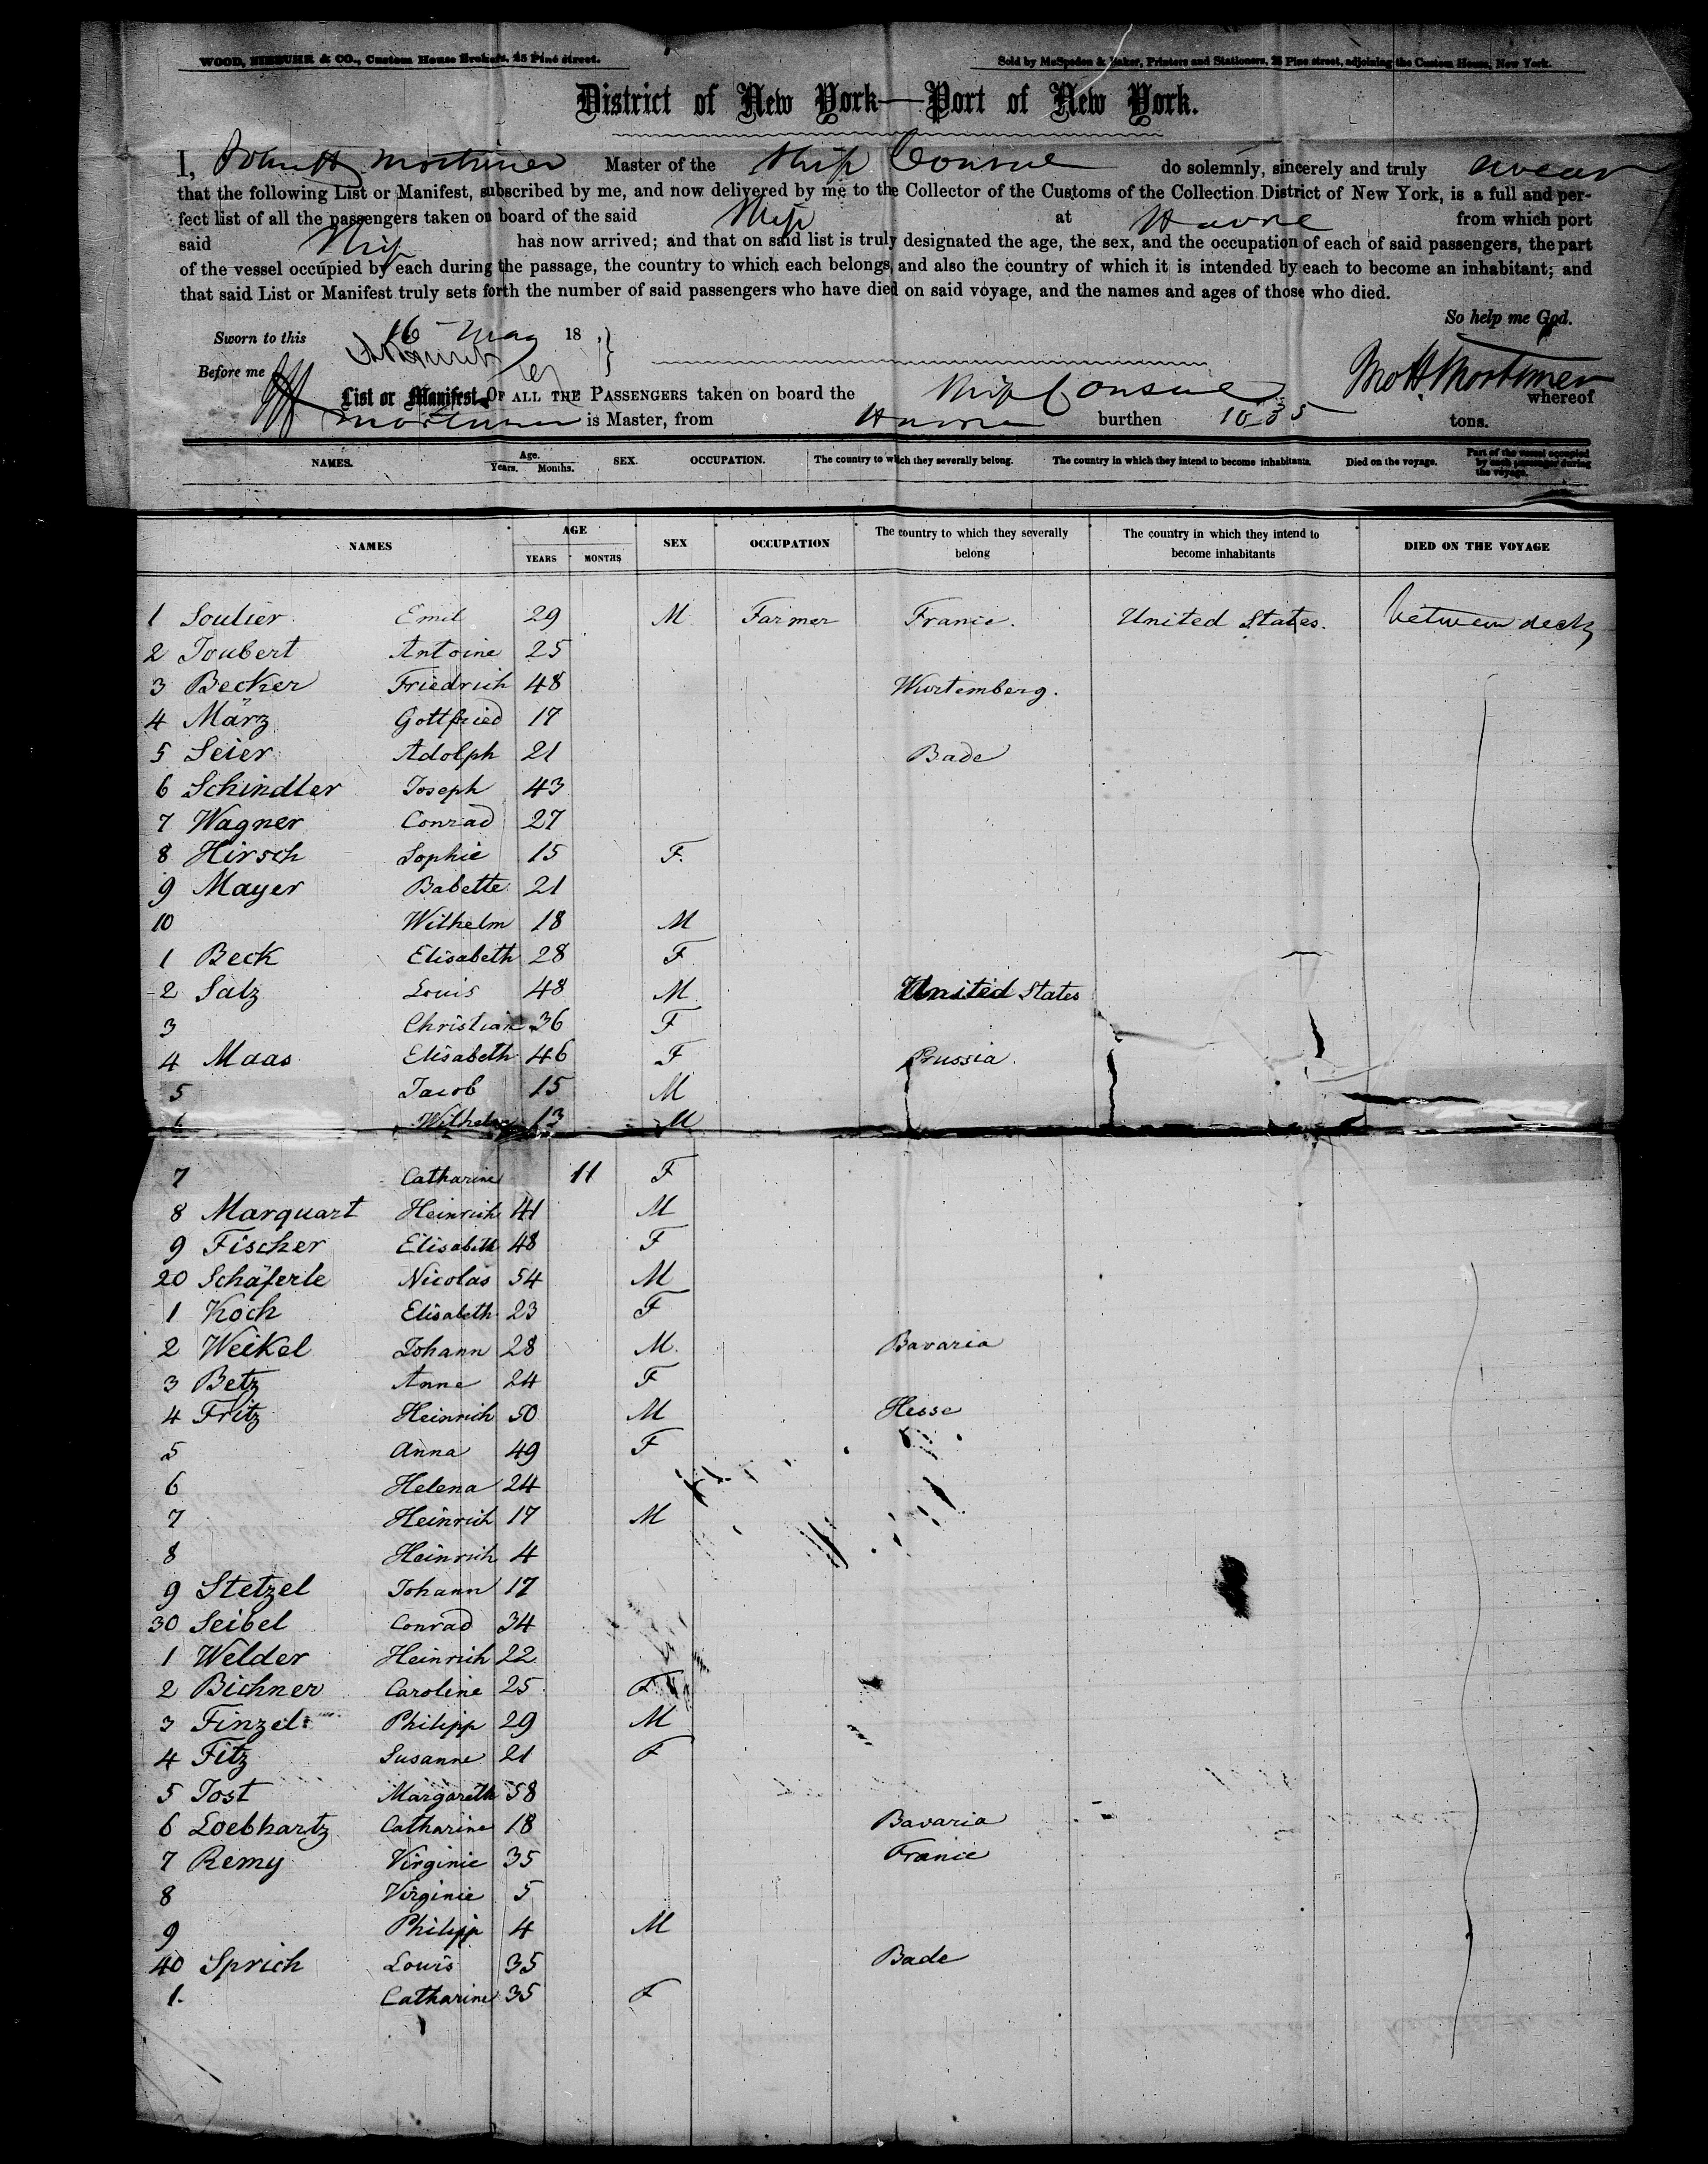 WOOD, NIEBUHR & CO., Custom House Brokers, 25 Pine street.
Sold by McSpedon & Baker, Printers and Stationers, 25 Pine street, adjoining the Custom House, New York.
District of New York—Port of New York.
I, John H Mortimer Master of the Ship Consul do solemnly, sincerely and truly swear
that the following List or Manifest, subscribed by me, and now delivered by me to the Collector of the Customs of the Collection District of New York, is a full and per-
fect list of all the passengers taken on board of the said Ship at Havre from which port
said Ship has now arrived; and that on said list is truly designated the age, the sex, and the occupation of each of said passengers, the part
of the vessel occupied by each during the passage, the country to which each belongs, and also the country of which it is intended by each to become an inhabitant; and
that said List or Manifest truly sets forth the number of said passengers who have died on said voyage, and the names and ages of those who died.
So help me God.
Sworn to this 16 May 18
Before me
Jno H. Mortimer
List or Manifest OF ALL THE PASSENGERS taken on board the Ship Consul whereof
Mortimer is Master, from Havre burthen 1035 tons.
NAMES. Age. Years. Months. SEX. OCCUPATION. The country to which they severally belong. The country in which they intend to become inhabitants. Died on the voyage. Part of the vessel occupied by each passenger during the voyage.
NAMES AGE YEARS MONTHS SEX OCCUPATION The country to which they severally belong The country in which they intend to become inhabitants DIED ON THE VOYAGE
1 Soulier Emil 29 M Farmer France. United States. between decks
2 Joubert Antoine 25
3 Becker Friedrich 48 Wurtemberg.
4 März Gottfried 17
5 Seier Adolph 21 Bade
6 Schindler Joseph 43
7 Wagner Conrad 27
8 Hirsch Sophie 15 F.
9 Mayer Babette 21
10 Wilhelm 18 M
1 Beck Elisabeth 28 F
2 Salz Louis 48 M United States
3 Christian 36 F
4 Maas Elisabeth 46 F Prussia.
5 Jacob 15 M
6 Wilhelm 13 M
7 Catharine 11 F
8 Marquart Heinrich 41 M
9 Fischer Elisabeth 48 F
20 Schäferle Nicolas 54 M
1 Koch Elisabeth 23 F
2 Weikel Johann 28 M. Bavaria
3 Betz Anne 24 F
4 Fritz Heinrich 50 M Hesse
5 Anna 49 F
6 Helena 24
7 Heinrich 17 M
8 Heinrich 4
9 Stetzel Johann 17
30 Seibel Conrad 34
1 Welder Heinrich 22
2 Bichner Caroline 25 F
3 Finzel Philipp 29 M
4 Fitz Susanne 21 F
5 Jost Margareth 58
6 Loebhartz Catharine 18 Bavaria
7 Remy Virginie 35 France
8 Virginie 5
9 Philipp 4 M
40 Sprich Louis 35 Bade
1. Catharine 35 F